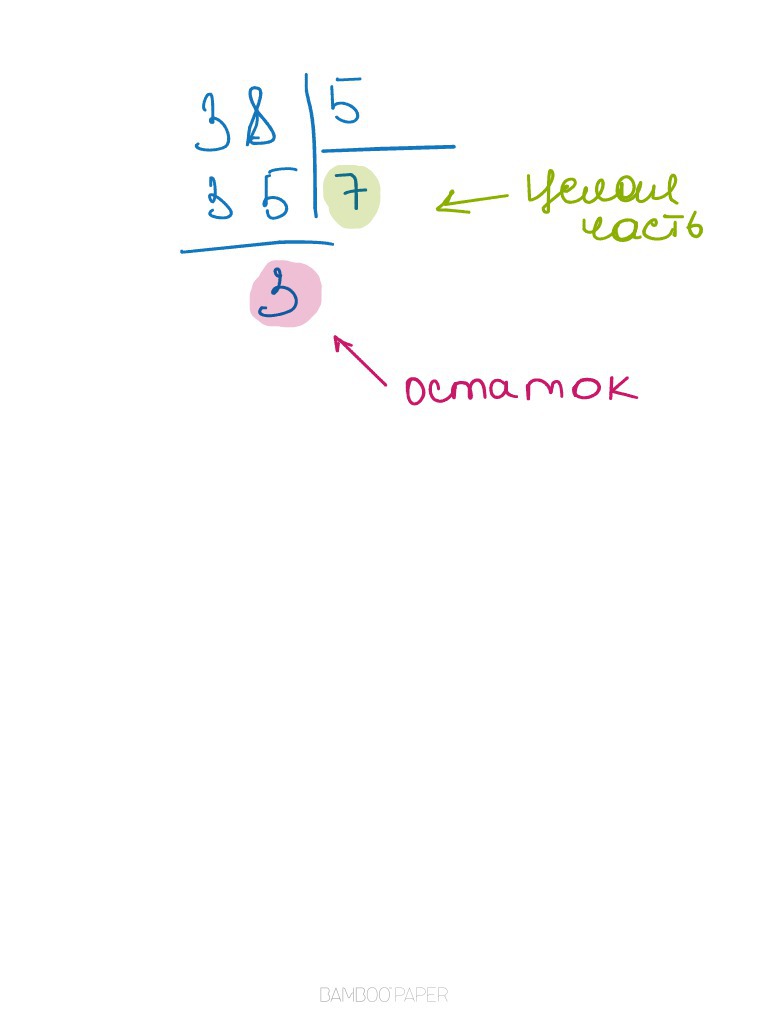 38 5
35 7
целая
часть
3
остаток
BAMBOO PAPER